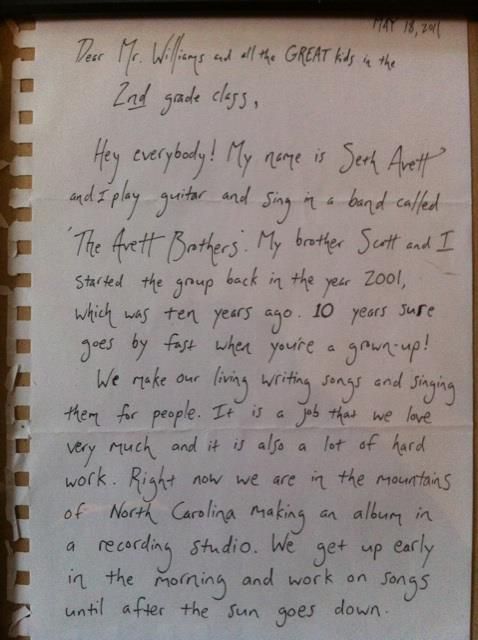 MAY 18, 2011
Dear Mr. Williams and all the GREAT kids in the
2nd grade class,
Hey everybody! My name is Seth Avett
and I play guitar and sing in a band called
'The Avett Brothers'. My brother Scott and I
started the group back in the year 2001,
which was ten years ago. 10 years sure
goes by fast when you're a grown-up!
We make our living writing songs and singing
them for people. It is a job that we love
very much and it is also a lot of hard
work. Right now we are in the mountains
of North Carolina making an album in
a recording studio. We get up early
in the morning and work on songs
until after the sun goes down.